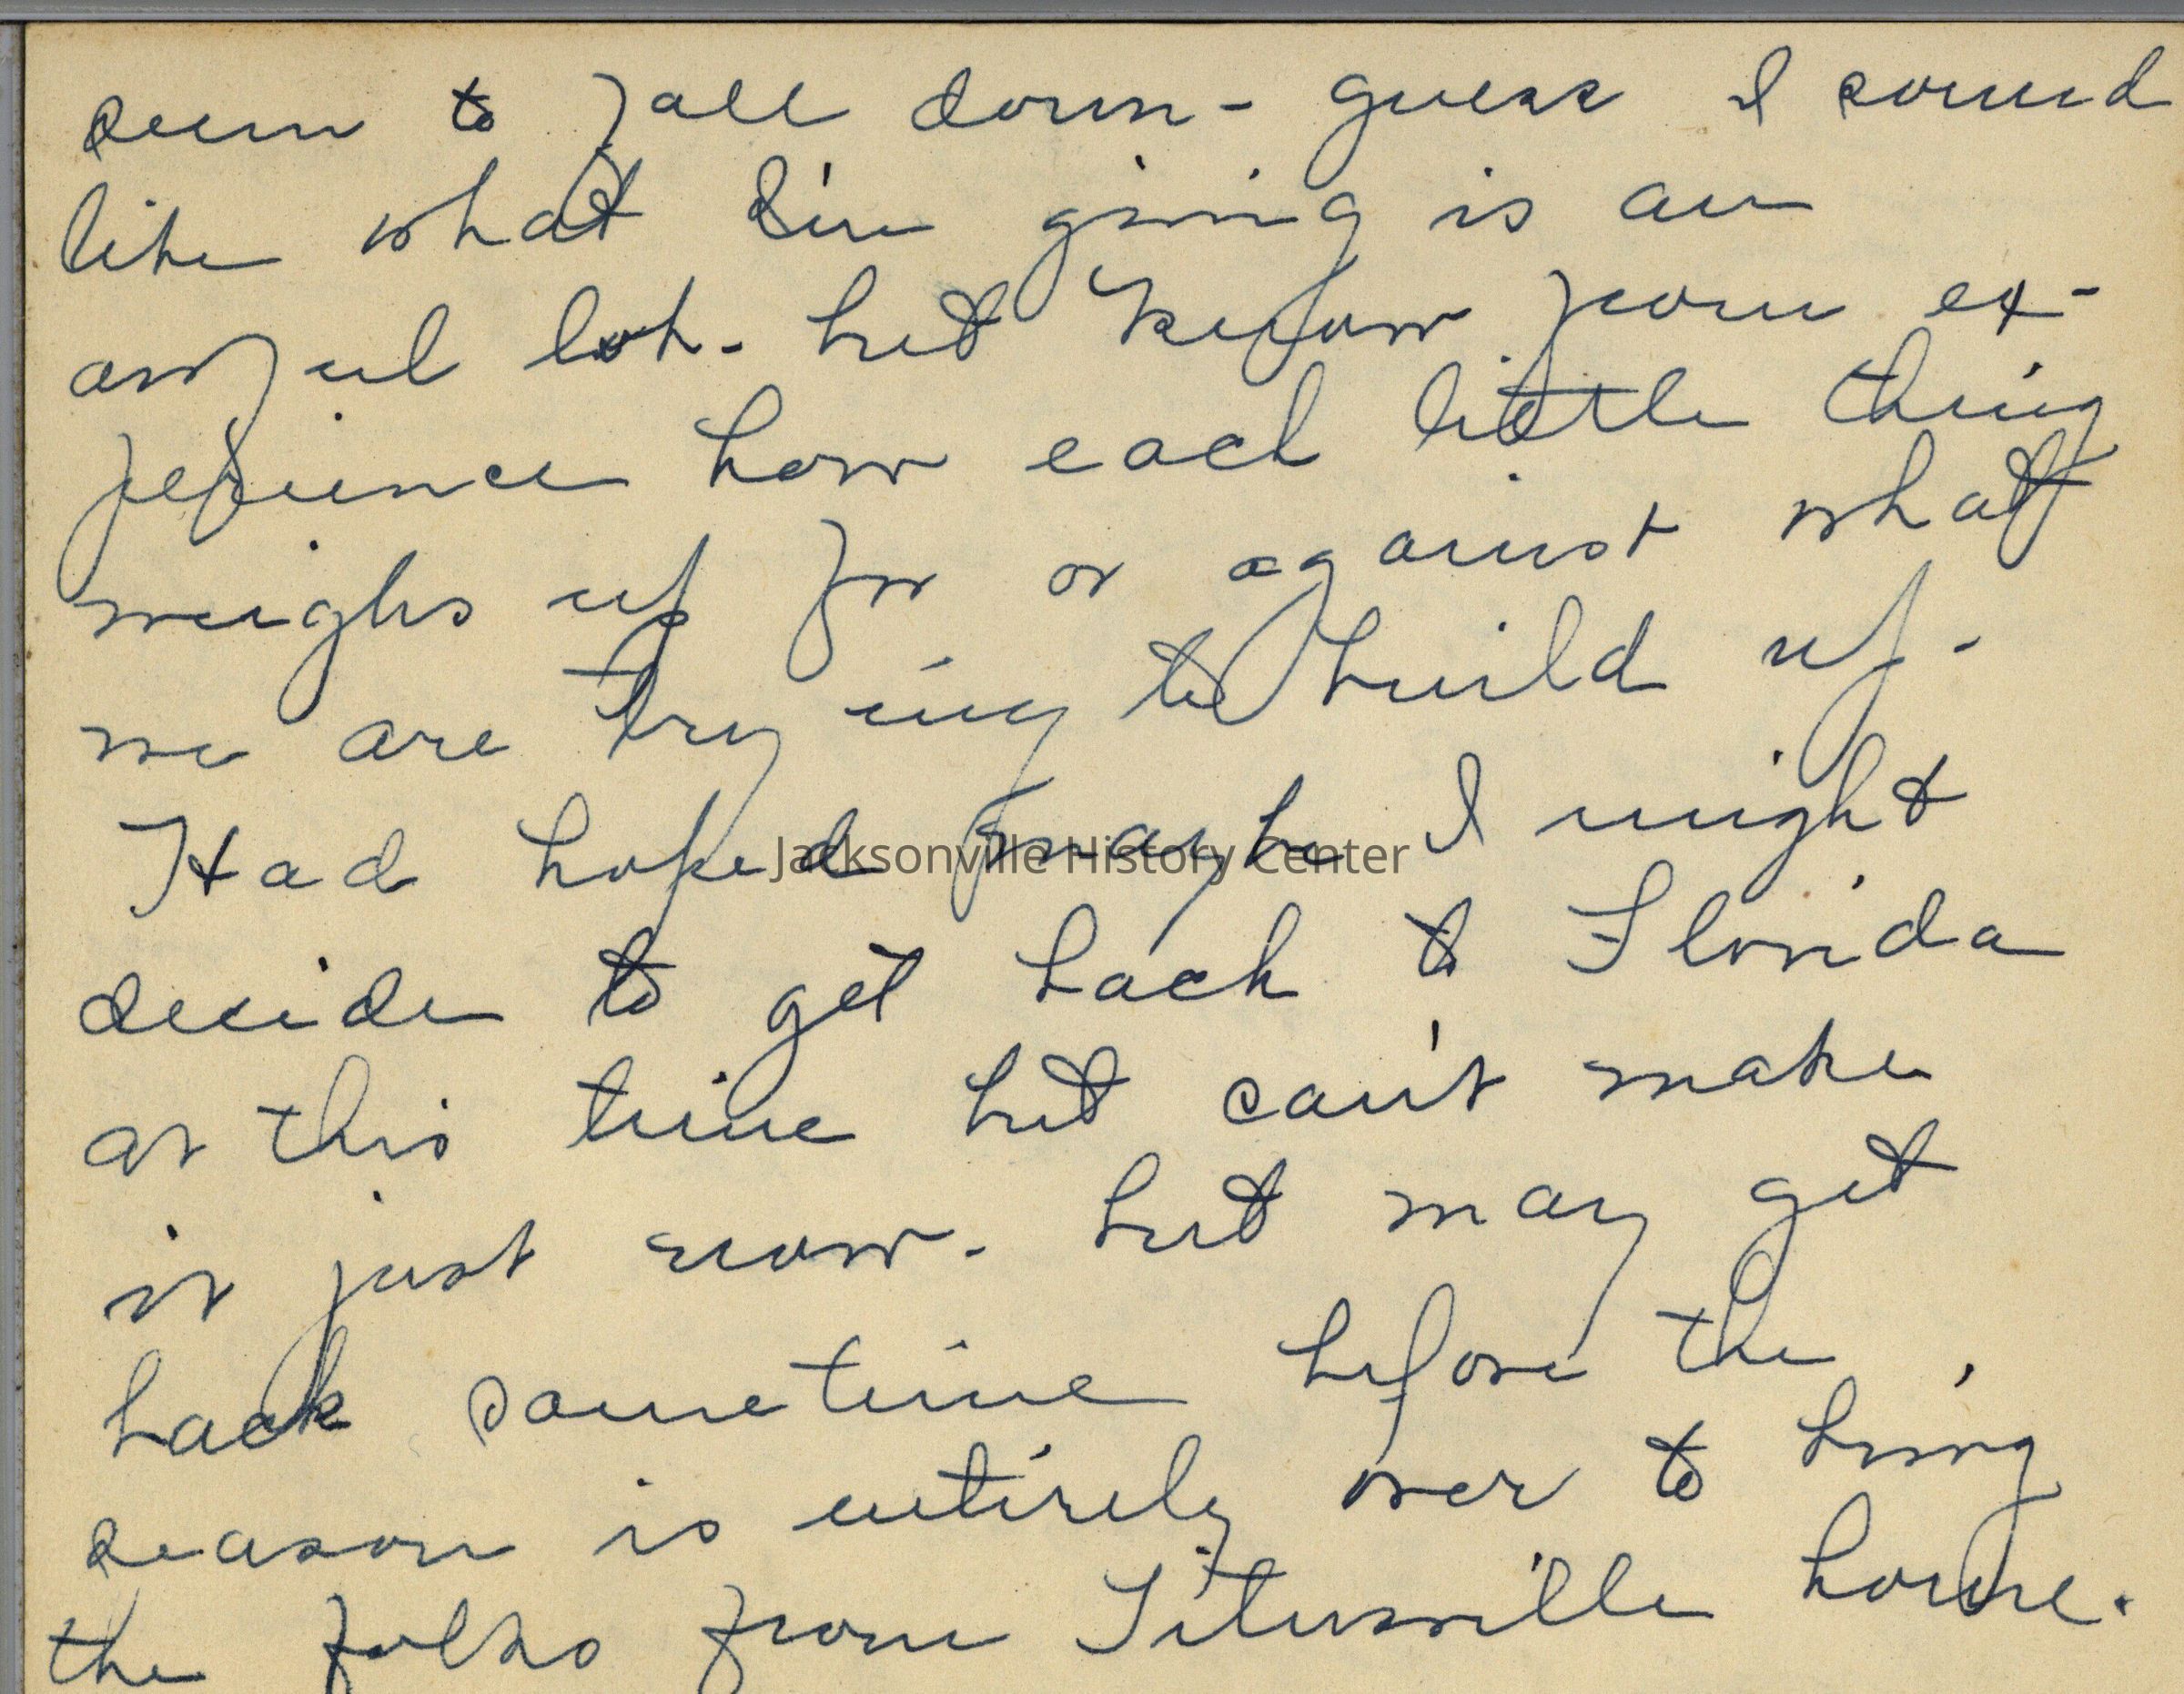 seem to fall down - guess I sound
like what I'm giving is an
awful lot - but know from ex-
perience how each little thing
weighs up for or against what
we are trying to build up -
Had hoped maybe I might
decide to get back to Florida
at this time but can't make
it just now - but may get
back sometime before the
season is entirely over to bring
the folks from Titusville home.
Jacksonville History Center